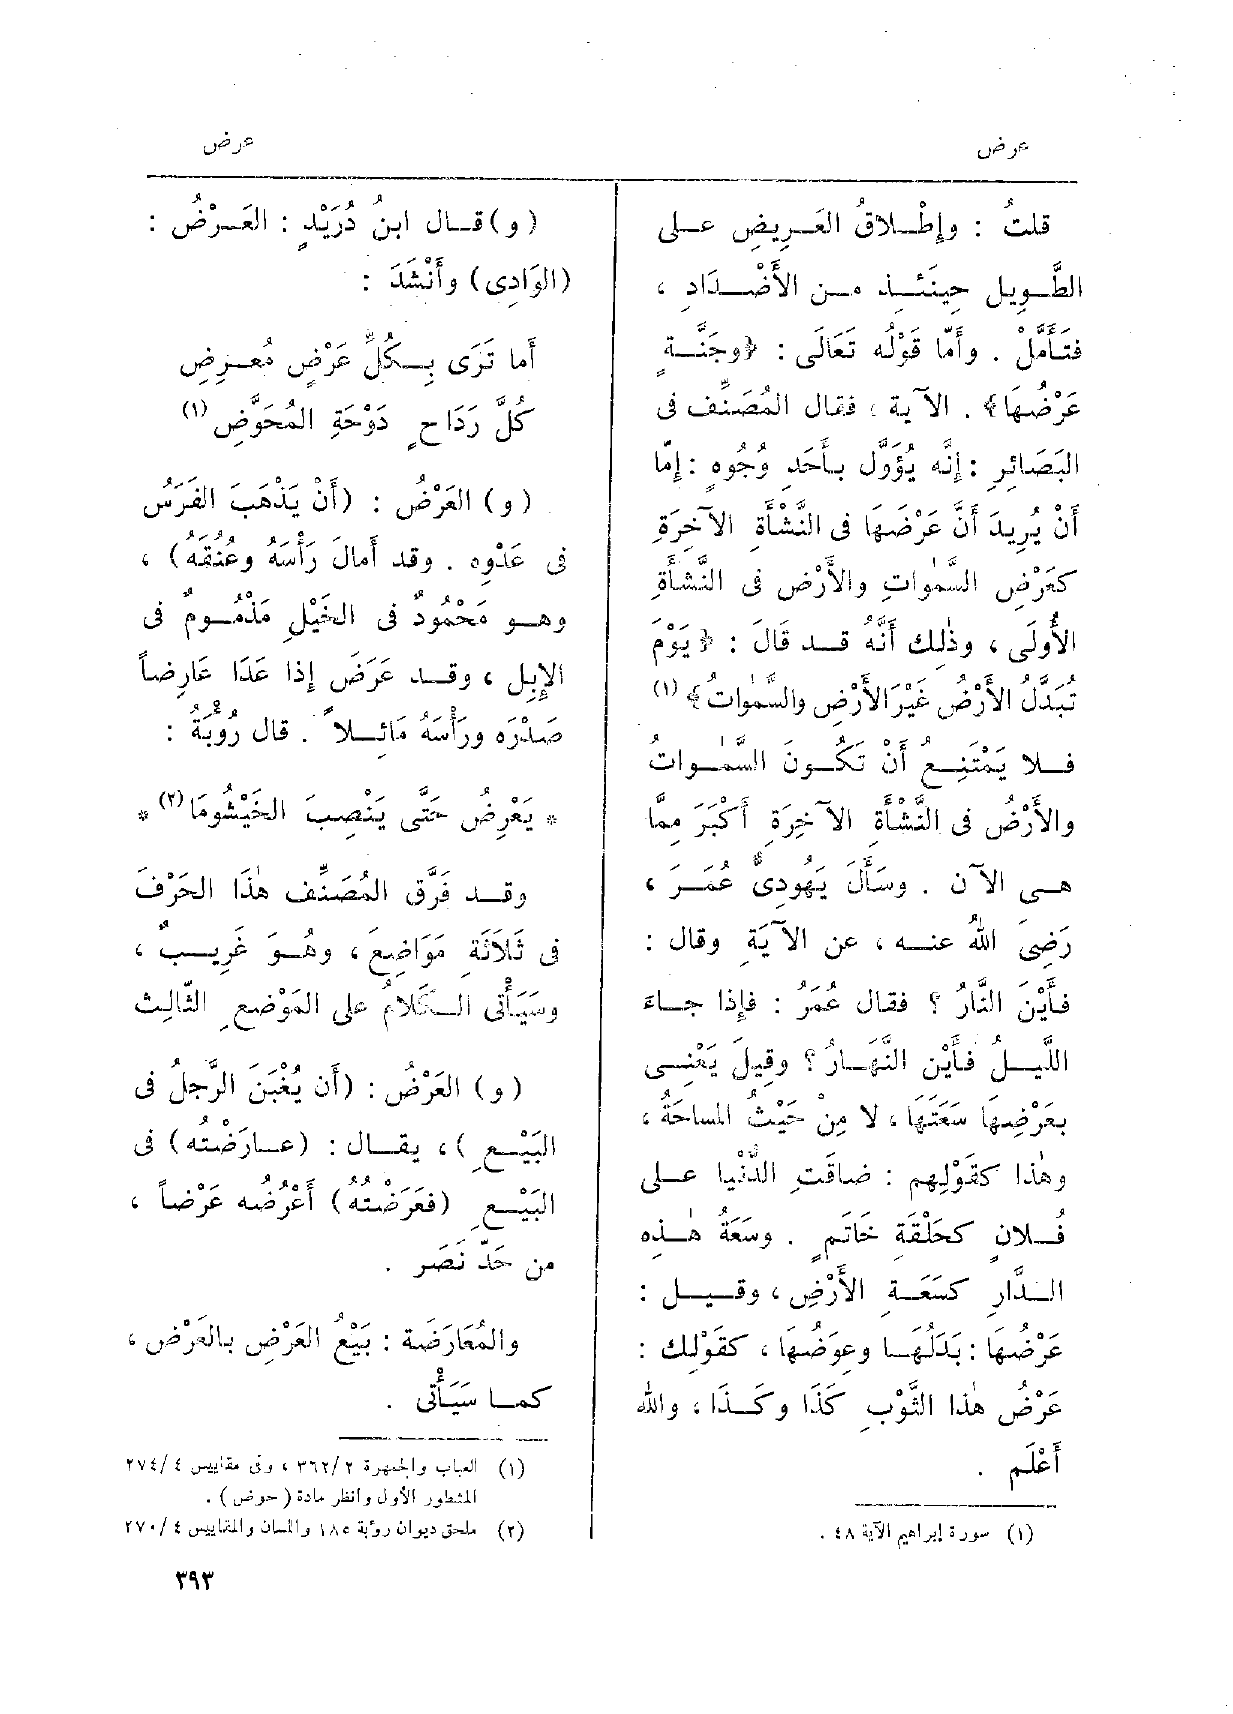 عرض
عرض
قلتُ : وإِطْلاقُ العَرِيضِ على
الطَّوِيل حِينَئذ من الأَضْدَادِ ،
فتَأَمَّلْ . وأَمّا قَوْلُه تَعَالَى : ﴿وجَنَّةٍ
عَرْضُها﴾ . الآية ، فقال المُصَنِّف فى
البَصَائرِ : إِنَّه يُؤوَّل بأَحَدِ وُجُوهٍ : إِمّا
أَنْ يُرِيدَ أَنَّ عَرْضَهَا فى النَّشْأَةِ الآخِرَةِ
كعَرْضِ السَّمٰواتِ والأَرْضِ فى النَّشْأَةِ
الأُولَى ، وذٰلك أَنَّهُ قد قَالَ : ﴿يَوْمَ
تُبَدَّلُ الأَرْضُ غَيْرَ الأَرْضِ والسَّمٰواتُ﴾ (١)
فلا يَمْتَنِعُ أَنْ تَكُونَ السَّمٰواتُ
والأَرْضُ فى النَّشْأَةِ الآخِرَةِ أَكْبَرَ مِمَّا
هى الآن . وسَأَلَ يَهُودىٌّ عُمَرَ ،
رَضِىَ اللهُ عنه ، عن الآيَةِ وقال :
فأَيْنَ النَّارُ ؟ فقال عُمَرُ : فإذا جاءَ
اللَّيلُ فأَيْن النَّهارُ ؟ وقِيلَ يَعْنِى
بعَرْضِهَا سَعَتَهَا ، لا مِنْ حَيْثُ المساحَةُ ،
وهٰذا كقَوْلِهِم : ضاقَتِ الدُّنْيا على
فُلانٍ كحَلْقَةِ خَاتَمٍ . وسَعَةُ هٰذِه
الدَّارِ كسَعَةِ الأَرْضِ ، وقيل :
عَرْضُهَا : بَدَلُهَا وعوَضُهَا ، كقَوْلِك :
عَرْضُ هٰذا الثَّوْبِ كَذَا وكَذَا ، والله
أَعْلَم .
(١) سورة إبراهيم الآية ٤٨ .
(و)قال ابنُ دُرَيْدٍ : العَرْضُ :
(الوَادِى) وأَنْشَدَ :
أَما تَرَى بِكُلِّ عَرْضٍ مُعرِضِ
كُلَّ رَدَاحٍ دَوْحَةِ المُحَوَّضِ (١)
(و) العَرْضُ : (أَنْ يَذْهَبَ الفَرَسُ
فى عَدْوِه . وقد أَمالَ رَأْسَهُ وعُنُقَهُ) ،
وهو مَحْمُودٌ فى الخَيْلِ مَذْمُومٌ فى
الإِبِل ، وقد عَرَضَ إذا عَدَا عَارِضاً
صَدْرَه ورَأْسَهُ مَائلاً . قال رُؤْبَةُ :
* يَعْرِضُ حَتَّى يَنْصِبَ الخَيْشُومَا (٢) *
وقد فَرَّق المُصَنِّف هٰذَا الحَرْفَ
فى ثَلاَثَةِ مَوَاضِعَ ، وهُوَ غَرِيبٌ ،
وسَيَأْتى الكَلاَمُ على المَوْضعِ الثّالِث
(و) العَرْضُ : (أَن يُغْبَنَ الرَّجلُ فى
البَيْعِ) ، يقال : (عارَضْتُه) فى
البَيْعِ (فعَرَضْتُهُ) أَعْرُضُه عَرْضاً ،
من حَدِّ نَصَر .
والمُعَارَضَة : بَيْعُ العَرْضِ بالعَرْض ،
كما سَيَأْتى .
(١) العباب والجمهرة ٣٦٢/٢ ، وفى مقاييس ٢٧٤/٤
المشطور الأول وانظر مادة (حوض) .
(٢) ملحق ديوان رؤبة ١٨٥ واللسان والمقاييس ٢٧٠/٤
٣٩٣